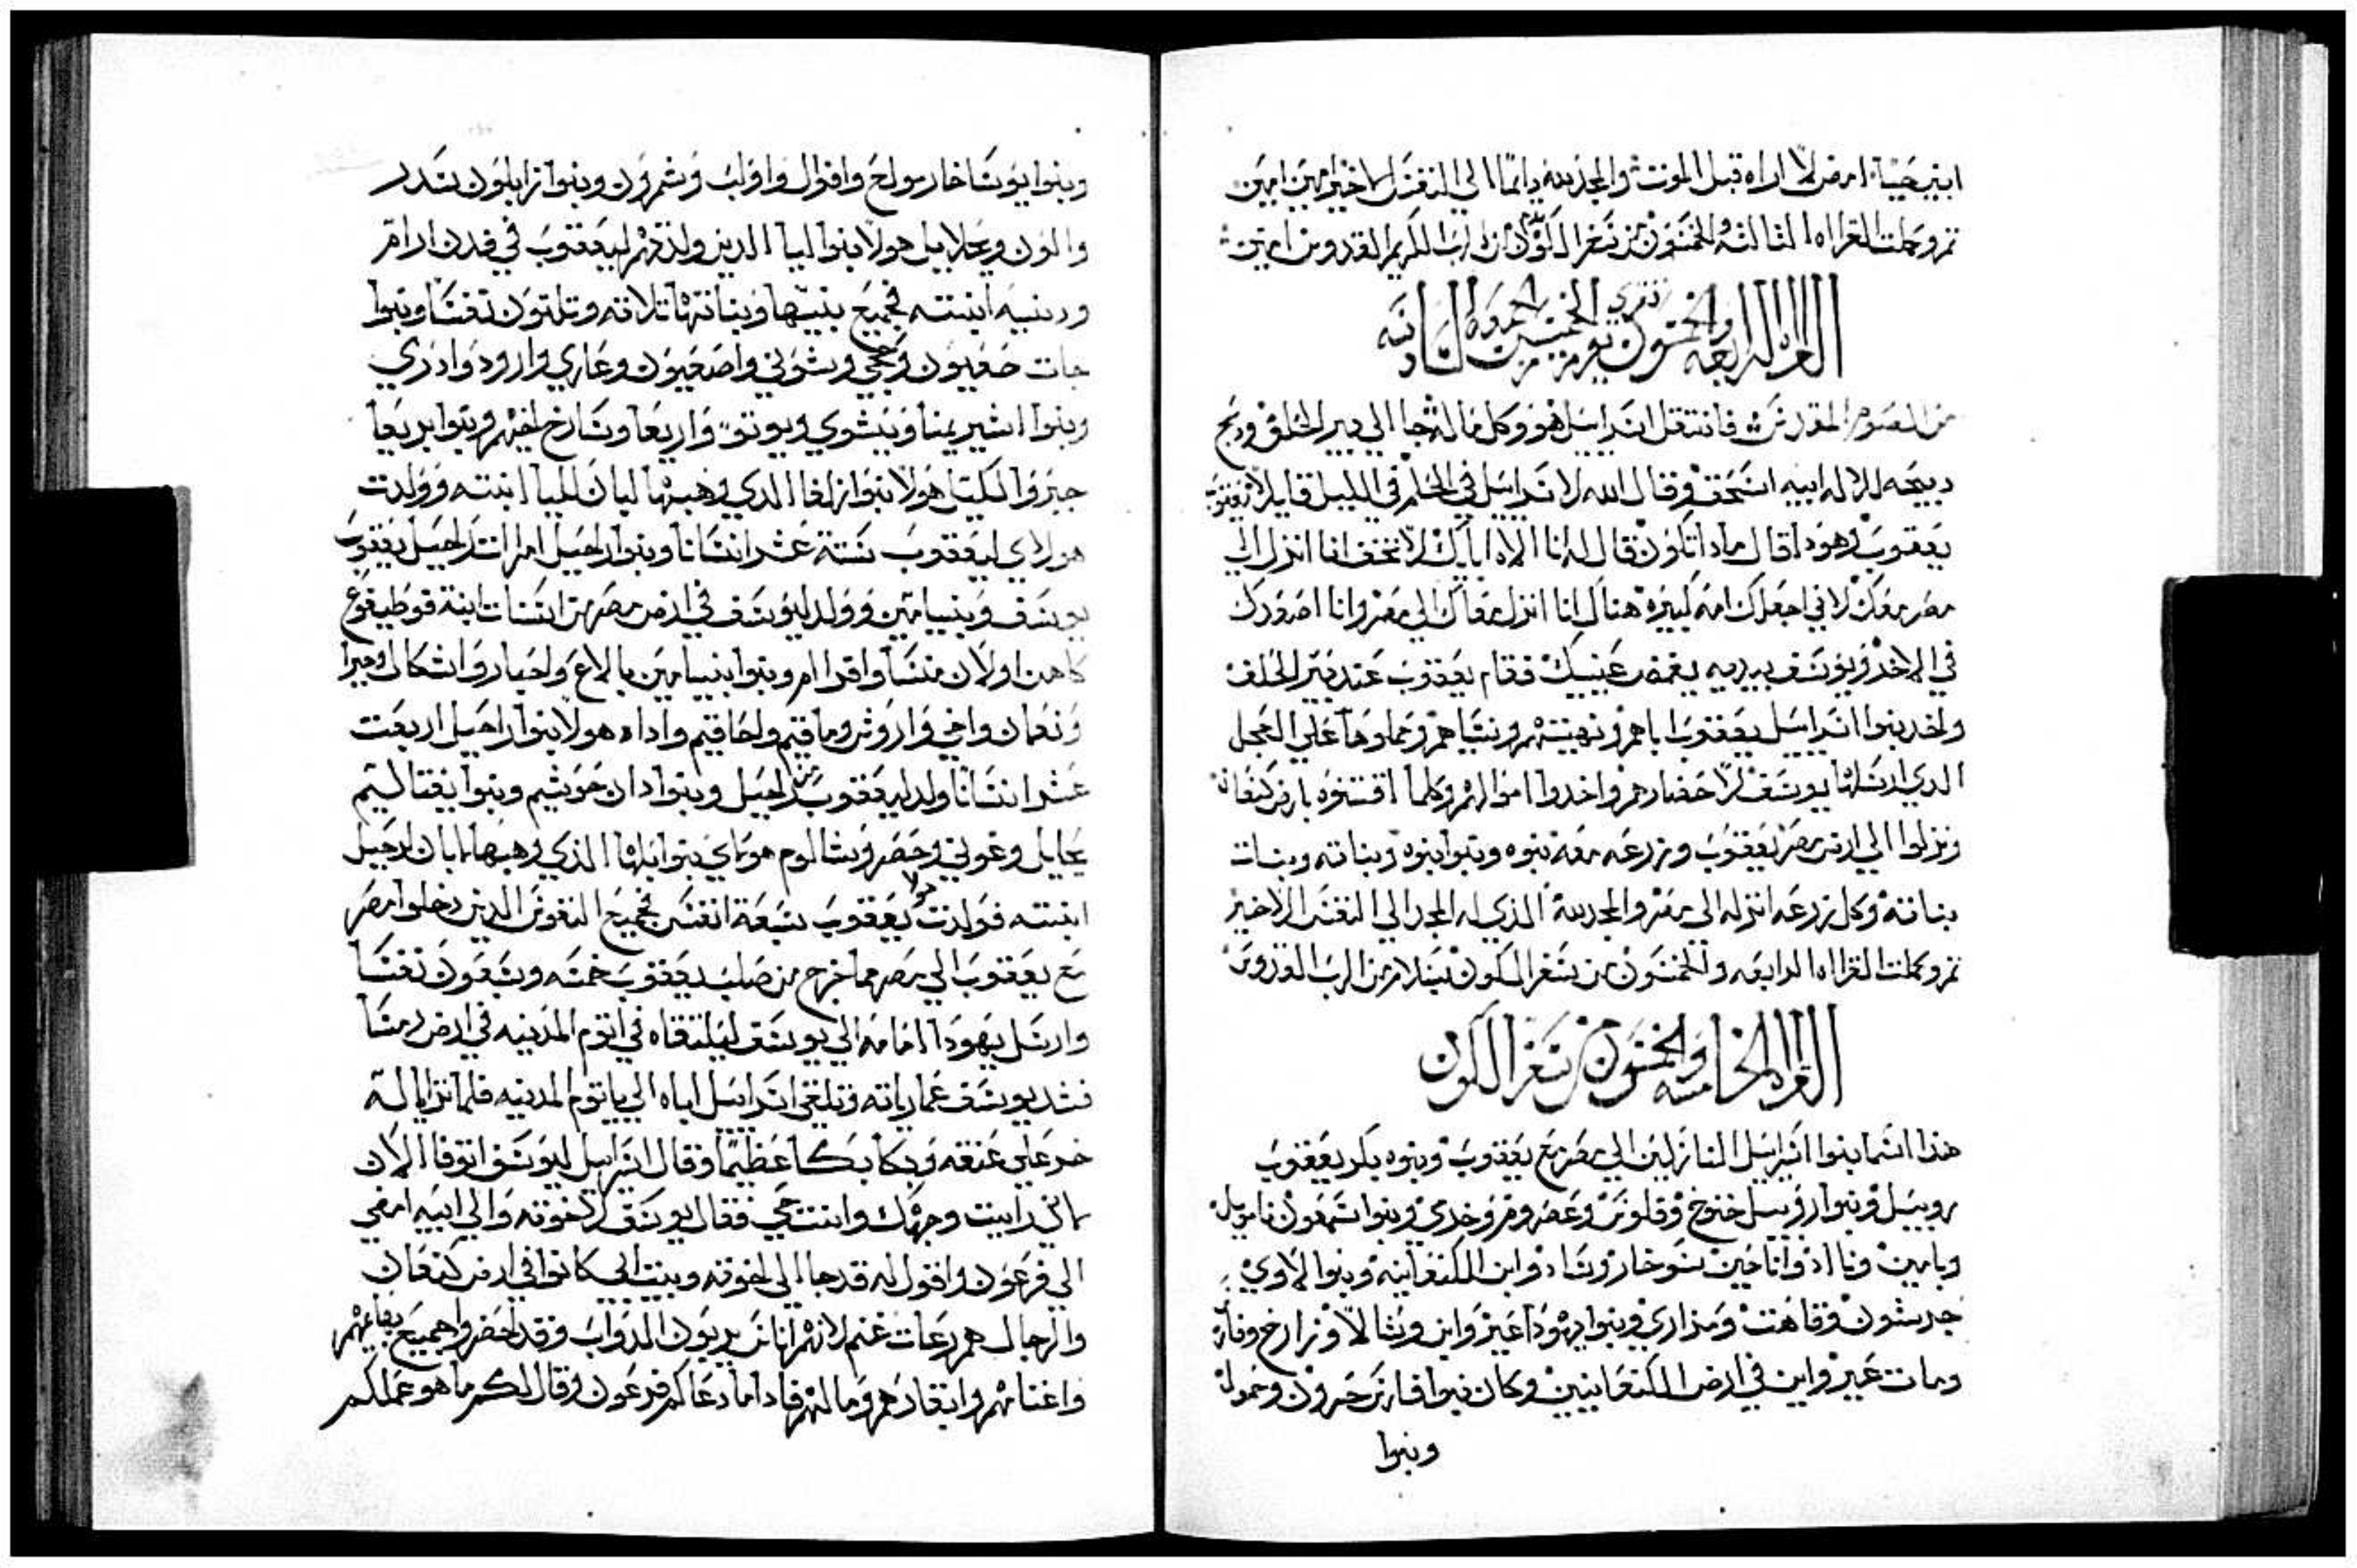 ابني حيًا امض لاراه قبل الموت والمجد لله دايمًا الي النفس الاخير امين امين
تم وكملت القراه الثالثه والخمسون من سفر الكون بسلام من الرب الكريم القدوس امين
القراه الرابعه والخمسون تقري يوم الخميس من الجمعه السادسه
من الصوم المقدس فانتقل اسراييل هو وكل ما له جا الي بير الحلف ودبح
دبيحه للاله ابيه اسحق وقال الله لاسراييل في الحلم في الليل قايلا يعقوب
يعقوب وهودا قال مادا تكون قال له انا الاه اباك لا تخف انا انزل الي
مصر معك لاني اجعلك امه كبيره هناك انا انزل معاك الي مصر وانا اصعدك
في الاخر ويوسف بيديه يغمض عينيك فقام يعقوب عند بير الحلف
واخد بنوا اسراييل يعقوب اباهم ونهبتهم ونساهم وحملوها علي العجل
الدي ارسلها يوسف لاحضارهم واخدوا اموالهم وكلما اقتنوه بارض كنعان
ونزلوا الي ارض مصر يعقوب وزرعه معه بنوه وبنوا بنوه وبناته وبنات
بناته وكل زرعه انزله الي مصر والمجد لله الذي له المجد الي النفس الاخير
تم وكملت القراه الرابعه والخمسون من سفر الكون بسلام من الرب القدوس
القراه الخامسه والخمسون من سفر الكون
هذا اسما بنوا اسراييل النازلين الي مصر مع يعقوب وبنوه بكر يعقوب
روبيل وبنوا روبيل خنوخ وفلوس وعصروم وخدي وبنوا شمعون نامويل
ويامين وناادو اناخين سوخار وشاد وابن الكنعانيه وبنوا لاوي
جرشون وقاهت ومراري وبنوا يهودا عير واين وشالا وزارخ وفارس
ومات عير واين في ارض الكنعانيين وكان بنوا فارس حصرون وحمول
وبنوا
وبنوا يوشاخار مولخ وافوال واوليب وشمرون وبنوا زابلون سدر
والون ويحلاييل هولا بنوا ليا الدين ولدتهم ليعقوب في فدن ارام
ودينيه ابنته فجميع بنيها وبناتها تلاته وتلتون نفسًا وبنوا
جات صفيون وحجي وشوني واصعيون وعاري وارود وادري
وبنوا اشير يمنا ويشوي ويوتو واربعا وشارخ اختهم وبنوا بريعا
جبرو الكيتل هولا بنوا زلفا الدي وهبها لابان لليا ابنته وولدت
هولاي ليعقوب ستة عشر انسانا وبنوا راحيل امراة يعقوب
يوسف وبنيامين وولد ليوسف في ارض مصر من اسنات ابنة فوطيفوع
كاهن اون منسا وافرام وبنوا بنيامين بالاع واخيار واشكال وجيرا
ونعمان واخي واروش وماقيم ولحاقيم واداه هولا بنوا راحيل اربعت
عشر انسانًا ولد ليعقوب من راحيل وبنوا دان حوشيم وبنوا نفتاليم
يحايل وغوني وحصر وشالوم هولاي بنوا بلها الذي وهبها لابان لراحيل
ابنته فولدت هولا ليعقوب سبعة انفس فجميع النفوس الدين دخلوا مصر
مع يعقوب الي مصر مما خرج من صلب يعقوب خمسه وسبعون نفسًا
وارسل يهودا امامه الي يوسف ليلتقاه في اتوم المدينه في ارض رمسا
فشد يوسف عمارياته وتلقي اسراييل اباه الي ياتوم المدينه فلما تراياله
خر علي عنقه وبكا بكًا عظيمًا وقال اسراييل ليوسف اتوفا الان
ماني رايت وجهك وانت حي فقال يوسف لاخوته والي ابيه امضي
الي فرعون واقول له قد جا الي اخوته وبيت ابي كانوا في ارض كنعان
والرجال هم رعات غنم لانهم اناس يربون الدواب وقد احضروا جميع بقايمهم
واغنامهم وابقارهم ومالهم فادا ما دعاكم فرعون وقال لكم ما هو عملكم